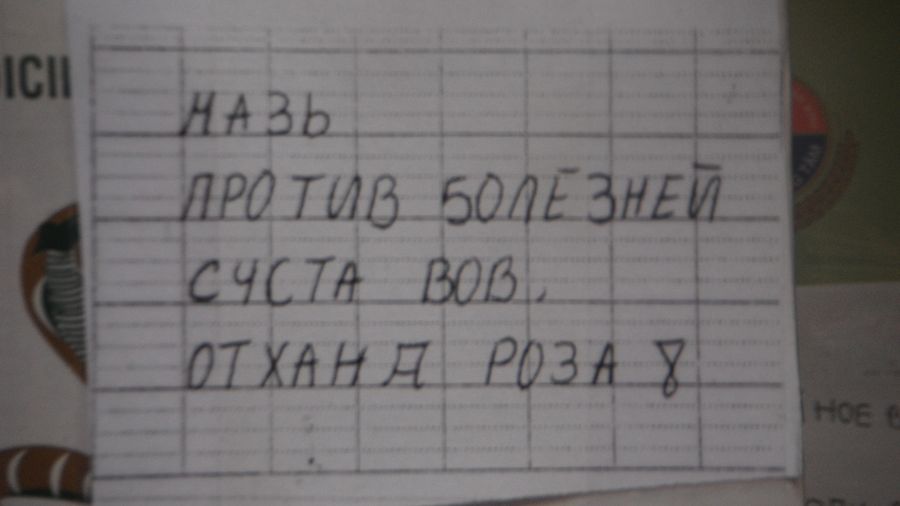 НАЗЬ
ПРОТИВ БОЛЕЗНЕЙ
СЧСТА ВОВ.
ОТХАНД РОЗА 8
ICII
НОЕ